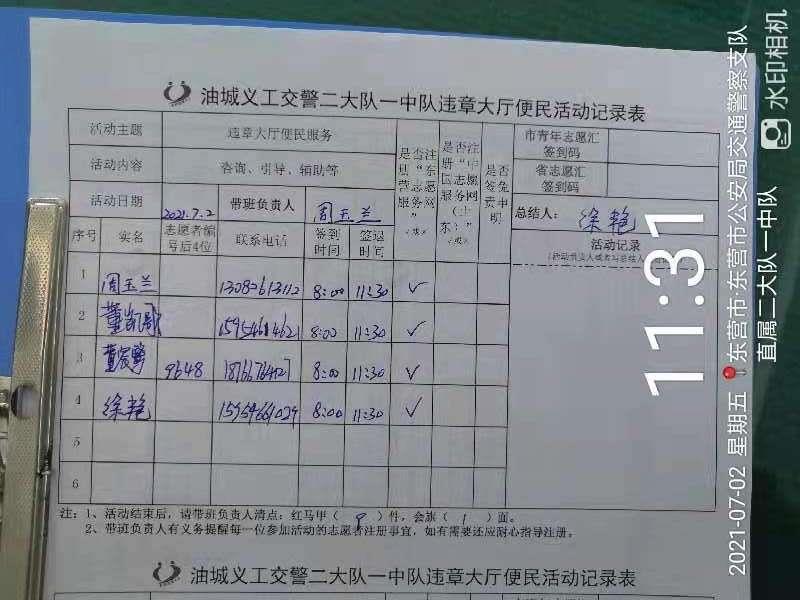 油城义工交警二大队一中队违章大厅便民活动记录表
活动主题 违章大厅便民服务 是否注册“东营志愿服务网”(√或×) 是否注册“中国志愿服务网(山东)”(√或×) 是否签免责申明 市青年志愿汇签到码
活动内容 咨询、引导、辅助等 省志愿汇签到码
活动日期 2021.7.2 带班负责人 周玉兰 总结人: 徐艳
序号 实名 志愿者编号后4位 联系电话 签到时间 签退时间 活动记录
1 周玉兰 13082613112 8:00 11:30 √
2 董 8:00 11:30 √
3 董 9648 8:00 11:30 √
4 徐艳 8:00 11:30 √
5
6
注: 1、活动结束后,请带班负责人清点:红马甲( 9 )件,会旗( 1 )面。
2、带班负责人有义务提醒每一位参加活动的志愿者注册事宜,如有需要还应耐心指导注册。
油城义工交警二大队一中队违章大厅便民活动记录表
11:31
2021-07-02 星期五 东营市·东营市公安局交通警察支队
直属二大队一中队
水印相机